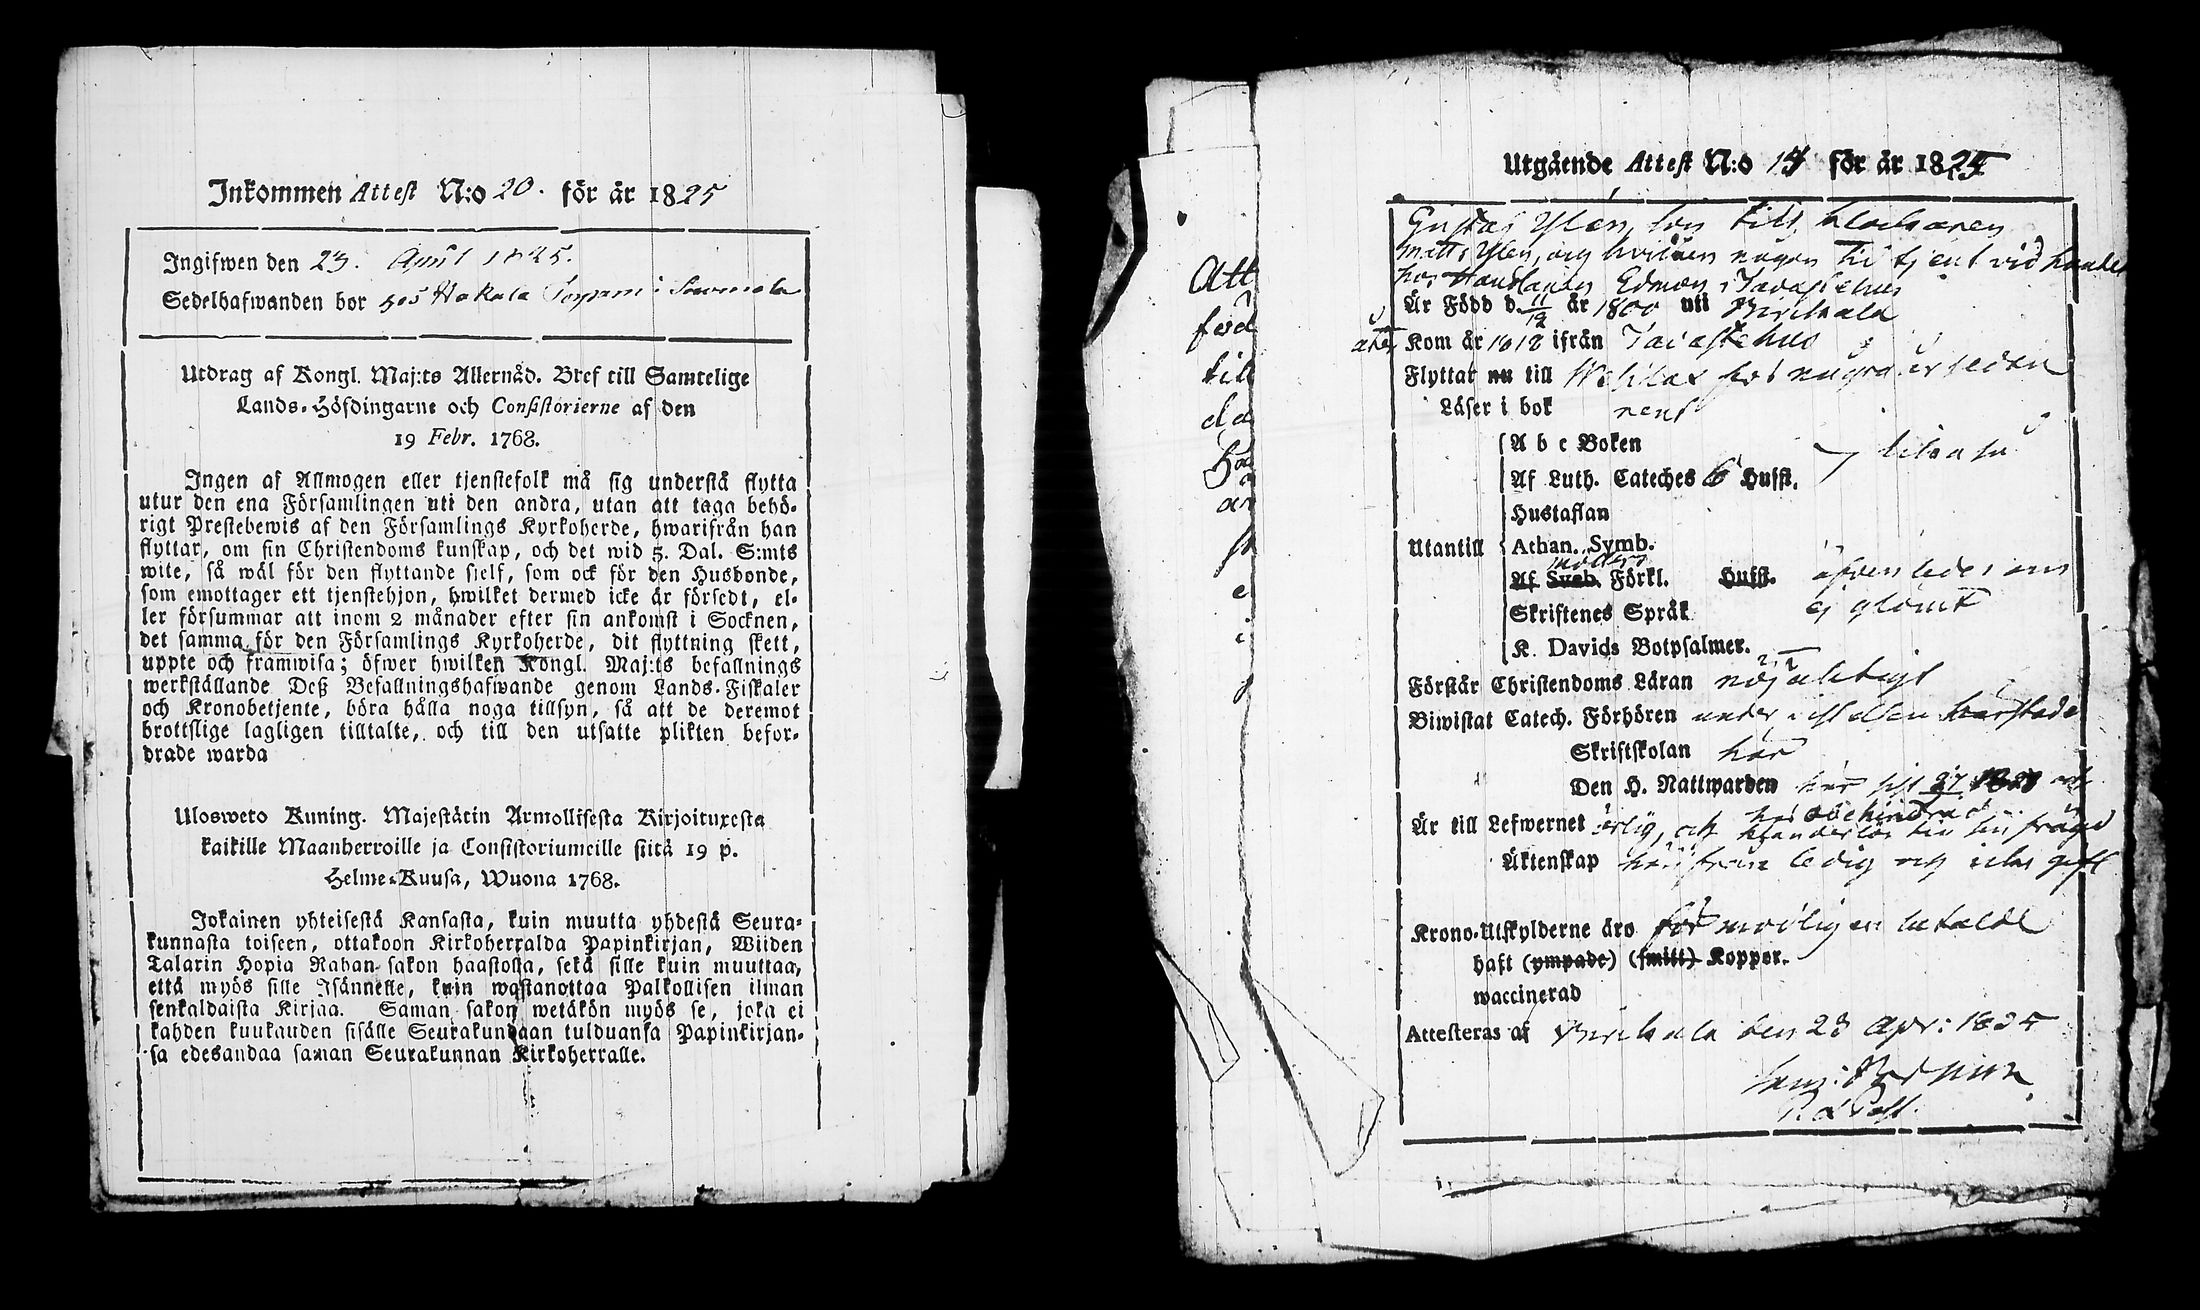 Inkommen Attest N:o 20. för år 1825
Ingifwen den 23. April 1825.
Sedelhafwanden bor hos Hakala i
Utdrag af Kongl. Maj:ts Allernåd. Bref till Samtelige
Lands-Höfdingarne och Consistorierne af den
19 Febr. 1768.
Ingen af Allmogen eller tjenstefolk må sig understå flytta
utur den ena Församlingen uti den andra, utan att taga behö-
rigt Prestebewis af den Församlings Kyrkoherde, hwarifrån han
flyttar, om sin Christendoms kunskap, och det wid 5. Dal. S:mts
wite, så wäl för den flyttande sielf, som ock för den Husbonde,
som emottager ett tjenstehjon, hwilket dermed icke är försedt, el-
ler försummar att inom 2 månader efter sin ankomst i Socknen,
det samma för den Församlings Kyrkoherde, dit flyttning skett,
uppte och framwisa; öfwer hwilken Kongl. Maj:ts befallnings
werkställande Deß Befallningshafwande genom Lands-Fiskaler
och Kronobetjente, böra hålla noga tillsyn, så att de deremot
brottslige lagligen tilltalte, och till den utsatte plikten befor-
drade warda
Ulosweto Kuning. Majestätin Armollisesta Kirjoituxesta
kaikille Maanherroille ja Consistoriumeille siitä 19 p.
Helme-Kuusa, Wuona 1768.
Jokainen yhteisestä Kansasta, kuin muutta yhdestä Seura-
kunnasta toiseen, ottakoon Kirkoherralda Papinkirjan, Wiiden
Talarin Hopia Rahan sakon haastolla, sekä sille kuin muuttaa,
että myös sille Isännelle, kuin wastanottaa Palkollisen ilman
senkaldaista Kirjaa. Saman sakon wetäkön myös se, joka ei
kahden kuukauden sisälle Seurakundaan tulduansa Papinkirjan-
sa edesandaa saman Seurakunnan Kirkoherralle.
Att
till
Utgående Attest N:o för år 1825
Gustaf Ylén, son till klockaren
Matts Ylen, och hvilken någon tid tjent vid handel
hos Handlanden Edman i Tavastehus
Är Född d. 11/12 år 1800 uti Birckala
Kom år 1818 ifrån Tavastehus
Flyttar nu till för några år sedan
Läser i bok rent
A b c Boken
Af Luth. Cateches 6 Hufst.
Hustaflan
Utantill Athan. Symb.
Af Symb. Förkl. Hufst. äfven
Skriftenes Språk ej glömt
K. Davids Botpsalmer.
Förstår Christendoms Läran nöjaktigt
Biwistat Catech. Förhören
Skriftskolan här
Den H. Nattwarden här sist
obehindrad
Är till Lefwernet ärlig, och till sin frägd
Äktenskap härifrån ledig och icke gift
Krono-Utskylderne äro förmodligen betalde
haft (ympade) (smitt) Koppor.
waccinerad
Attesteras af Birckala den 23 Apr: 1825